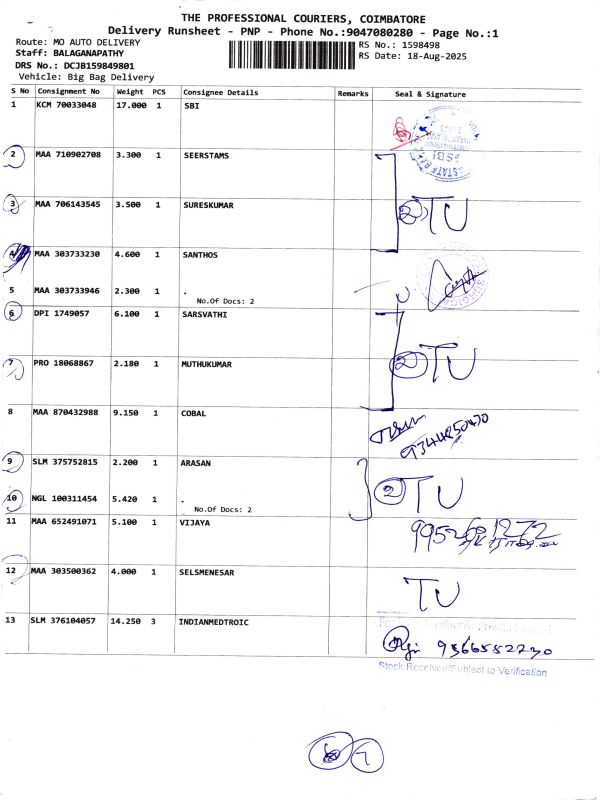 THE PROFESSIONAL COURIERS, COIMBATORE
Delivery Runsheet - PNP - Phone No.:9047080280 - Page No.:1
Route: MO AUTO DELIVERY
Staff: BALAGANAPATHY
DRS No.: DCJB159849801
Vehicle: Big Bag Delivery
RS No.: 1598498
RS Date: 18-Aug-2025
S No Consignment No Weight PCS Consignee Details Remarks Seal & Signature
1 KCM 70033048 17.000 1 SBI
2 MAA 710902708 3.300 1 SEERSTAMS
3 MAA 706143545 3.500 1 SURESKUMAR
2 TU
4 MAA 303733230 4.600 1 SANTHOS
5 MAA 303733946 2.300 1 .
No.Of Docs: 2
6 DPI 1749057 6.100 1 SARSVATHI
7 PRO 18068867 2.180 1 MUTHUKUMAR
2 TU
8 MAA 870432988 9.150 1 COBAL
9344850430
9 SLM 375752815 2.200 1 ARASAN
2 TU
10 NGL 100311454 5.420 1 .
No.Of Docs: 2
11 MAA 652491071 5.100 1 VIJAYA
12 MAA 303500362 4.000 1 SELSMENESAR
TU
13 SLM 376104057 14.250 3 INDIANMEDTROIC
9566552730
Stock Received/Subject to Verification
7